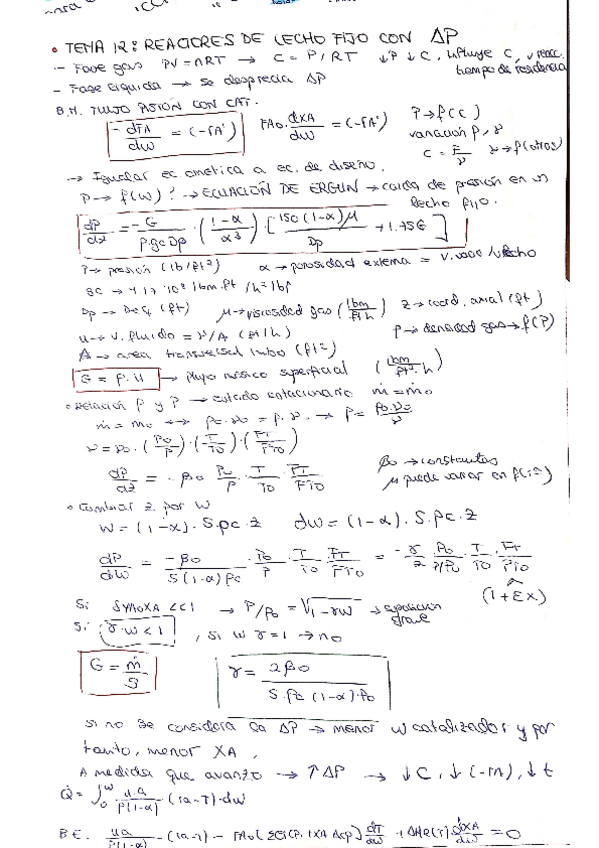 • TEMA 12: REACTORES DE LECHO FIJO CON ΔP
- Fase gas PV = nRT → C = P/RT ↓P ↓C, influye C, v reacc. tiempo de residencia
- Fase líquida → se desprecia ΔP
B.M. FLUJO PISTÓN CON CAT.
-dFA/dW = (-rA') FAo·dXA/dW = (-rA') P → f(C)
variación P, v
C = F/v v → f(otros)
→ Igualar ec. cinética a ec. de diseño.
P → f(W)? → ECUACIÓN DE ERGUN → caída de presión en un lecho fijo.
dP/dz = -G/(ρ·gc·Dp) · ((1-α)/α³) · [150(1-α)μ/Dp + 1.75G]
P → presión (lb/ft²) α → porosidad externa = V. /V lecho
gc → 4'17·10⁸ lbm·ft/h²·lbf
Dp → (ft) μ → viscosidad gas (lbm/ft·h) z → coord. axial (ft)
u → v. fluido = v/A (ft/h) ρ → densidad gas → f(P)
A → area transversal tubo (ft²)
G = ρ·u → flujo másico superficial (lbm/ft²·h)
• Relación P y ρ → estado estacionario ṁ = ṁo
ṁ = ṁo ↔ ρo·vo = ρ·v → ρ = ρo·vo/v
v = vo·(Po/P)·(T/To)·(FT/FTo)
dP/dz = -βo Po/P · T/To · FT/FTo βo → constantes
μ puede variar en
• Cambiar z por W
W = (1-α)·S·ρc·z dW = (1-α)·S·ρc·z
dP/dW = -βo/(S(1-α)ρc) · Po/P · T/To · FT/FTo = -γ/2 · Po/P/Po · T/To · FT/FTo
(1+εX)
Si SγAoXA <<1 → P/Po = √1-γW →
Si γ·W<1, si Wγ=1 → no
G = ṁ/S γ = 2βo/(S·ρc(1-α)·Po)
Si no se considera la ΔP → menor W catalizador y por
tanto, menor XA,
A medida que avanzo → ↑ΔP → ↓C, ↓(-rA), ↓t
Q̇ = ∫₀ᵂ u·a/(ρ(1-α)) · (Ta-T)·dW
B.E. ua/(ρ(1-α)) · (Ta-T) - FAo(